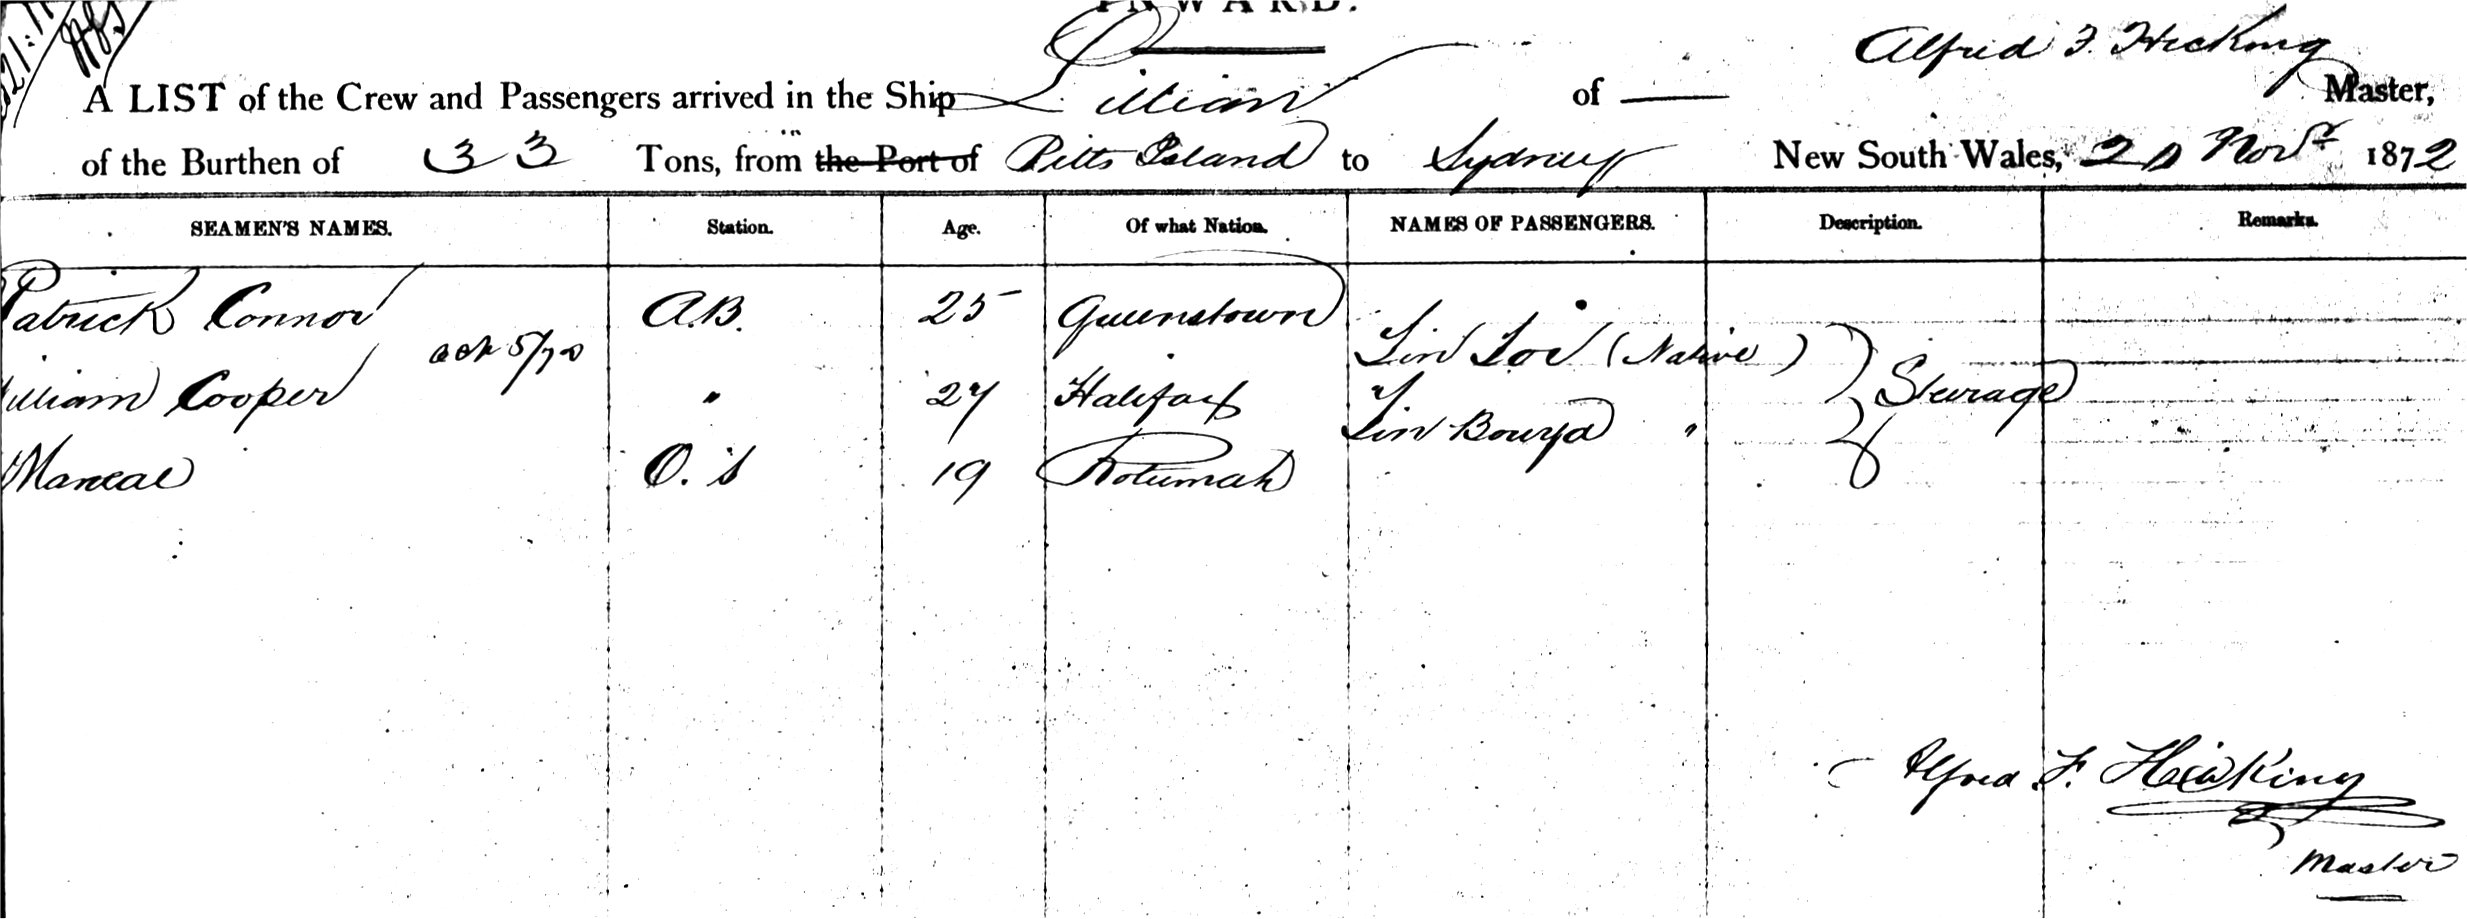 INWARD.
Alfred F. Hicking
A LIST of the Crew and Passengers arrived in the Ship Lillian of — Master,
of the Burthen of 33 Tons, from the Port of Pitts Island to Sydney New South Wales, Novr 1872
SEAMEN'S NAMES. Station. Age. Of what Nation. NAMES OF PASSENGERS. Description. Remarks.
Patrick Connor A.B. 25 Queenstown
Lin Loi (Native)
William Cooper " 27 Halifax Steerage
Lin "
O.S 19 Rotumah
Alfred. F. Hicking
Master